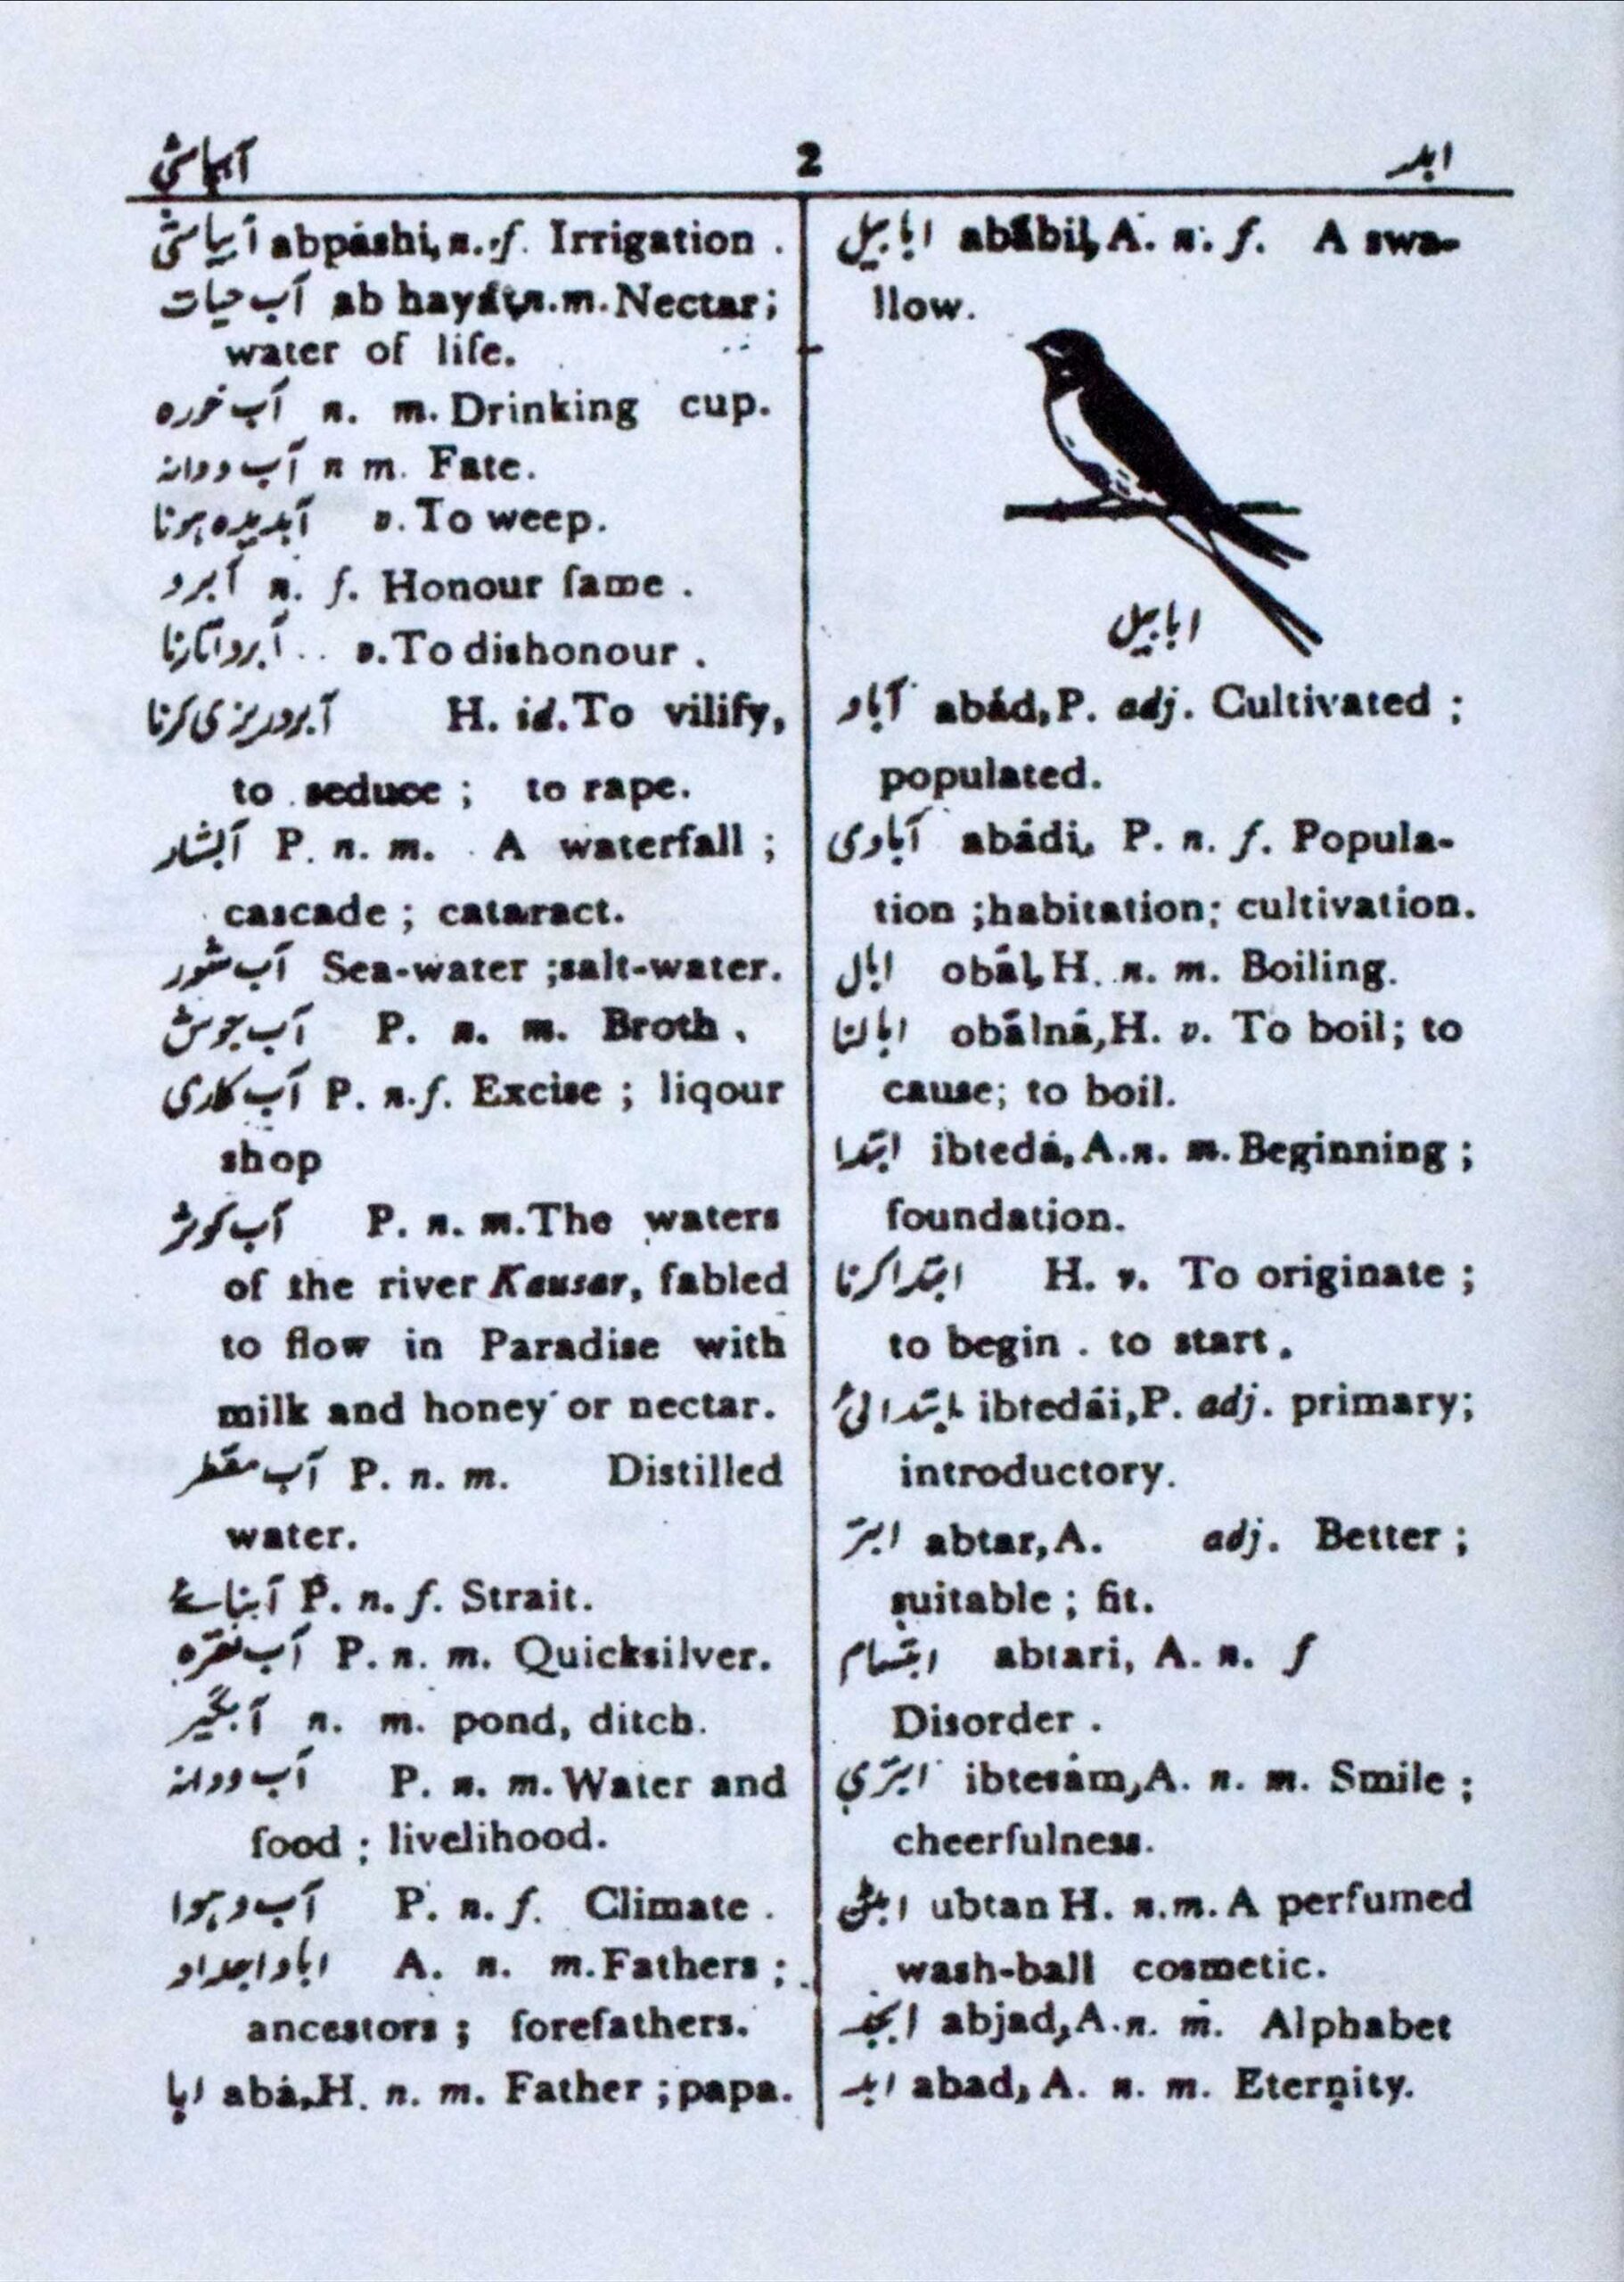 آبپاشی 2 ابد
آبپاشی abpáshi, n. f. Irrigation .
آب حیات ab hayát, n. m. Nectar;
water of life.
آب خورہ n. m. Drinking cup.
آب ودانہ n m. Fate.
آبدیدہ ہونا v. To weep.
آبرو n. f. Honour fame .
آبرو اتارنا .. v. To dishonour .
آبروریزی کرنا H. id. To vilify,
to seduce ; to rape.
آبشار P. n. m. A waterfall ;
cascade ; cataract.
آب شور Sea-water ;salt-water.
آب جوش P. n. m. Broth .
آب کاری P. n. f. Excise ; liqour
shop
آب کوثر P. n. m. The waters
of the river Kausar, fabled
to flow in Paradise with
milk and honey or nectar.
آب مقطر P. n. m. Distilled
water.
آبنائے P. n. f. Strait.
آب نقرہ P. n. m. Quicksilver.
آبگیر n. m. pond, ditch.
آب ودانہ P. n. m. Water and
food ; livelihood.
آب و ہوا P. n. f. Climate .
اباواجداد A. n. m. Fathers ;
ancestors ; forefathers.
ابا abá, H. n. m. Father ; papa.
ابابیل abábil, A. n. f. A swa-
llow.
ابابیل
آباد abád, P. adj. Cultivated ;
populated.
آبادی abádi, P. n. f. Popula-
tion ;habitation; cultivation.
ابال obál, H. n. m. Boiling.
ابالنا obálná, H. v. To boil; to
cause; to boil.
ابتدا ibtedá, A. n. m. Beginning ;
foundation.
ابتدا کرنا H. v. To originate ;
to begin . to start .
ابتدائی ibtedái, P. adj. primary;
introductory.
ابتر abtar, A. adj. Better ;
suitable ; fit.
ابتسام abtari, A. n. f
Disorder .
ابتری ibtesám, A. n. m. Smile ;
cheerfulness.
ابٹن ubtan H. n. m. A perfumed
wash-ball cosmetic.
ابجد abjad, A. n. m. Alphabet
ابد abad, A. n. m. Eternity.